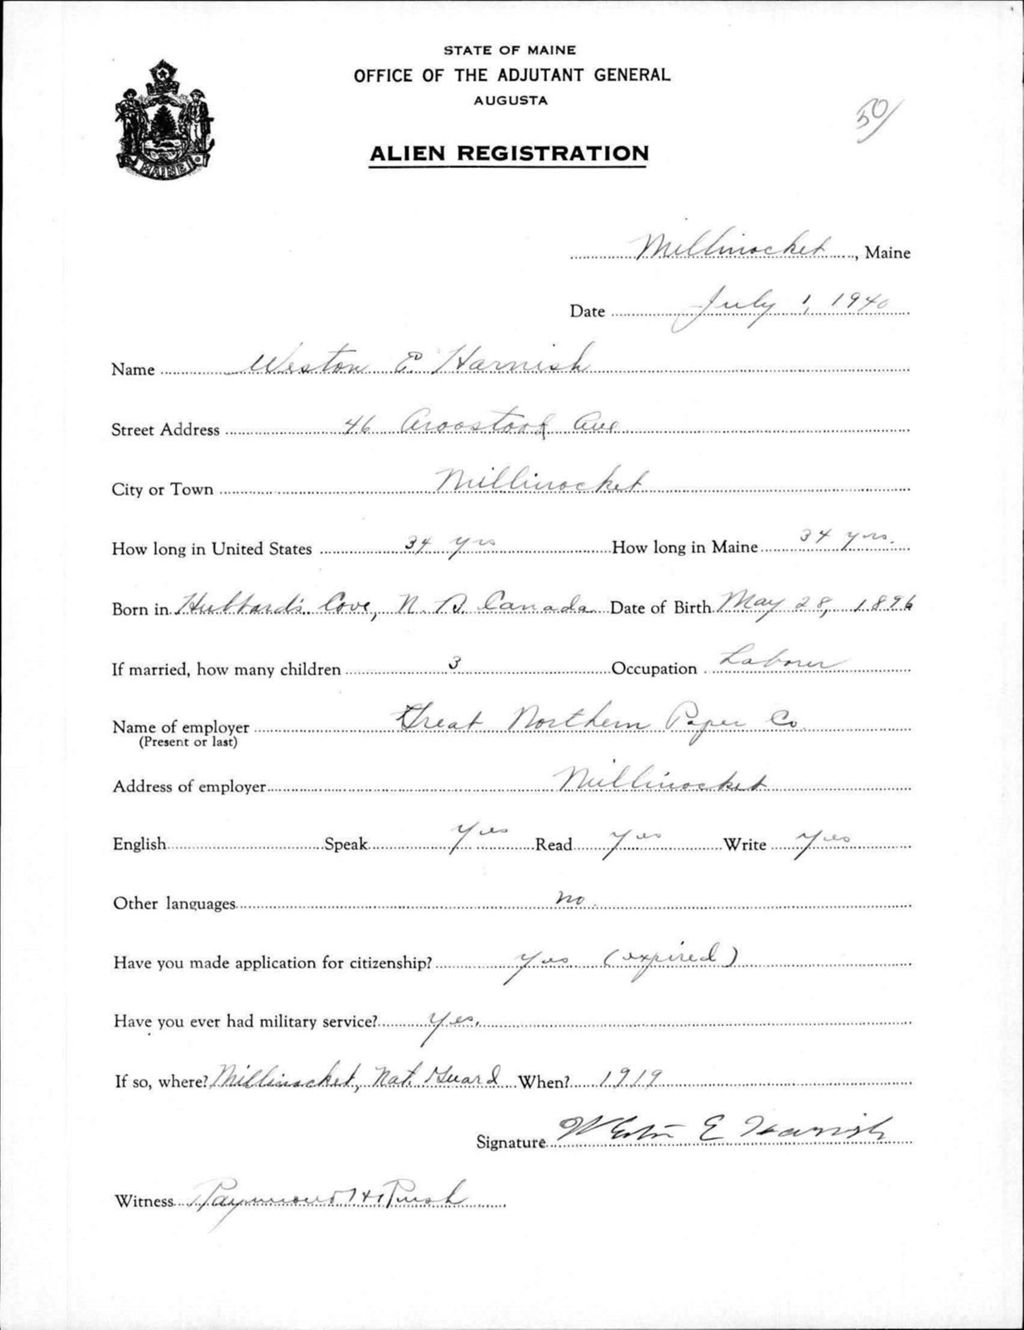 STATE OF MAINE
OFFICE OF THE ADJUTANT GENERAL
AUGUSTA
50
ALIEN REGISTRATION
MAINE
Millinocket, Maine
Date July 1, 1940
Name Weston E Harnish
Street Address 46 Aroostook Ave
City or Town Millinocket
How long in United States 34 yrs How long in Maine 34 yrs.
Born in Hubbard's Cove, N. S. Canada Date of Birth May 28, 1896
If married, how many children 3 Occupation Laborer
Name of employer Great Northern Paper Co.
(Present or last)
Address of employer Millinocket
English Speak Yes Read Yes Write Yes
Other languages no.
Have you made application for citizenship? Yes (expired)
Have you ever had military service? Yes.
If so, where? Millinocket, Nat. Guard When? 1919
Signature Weston E Harnish
Witness Raymond H